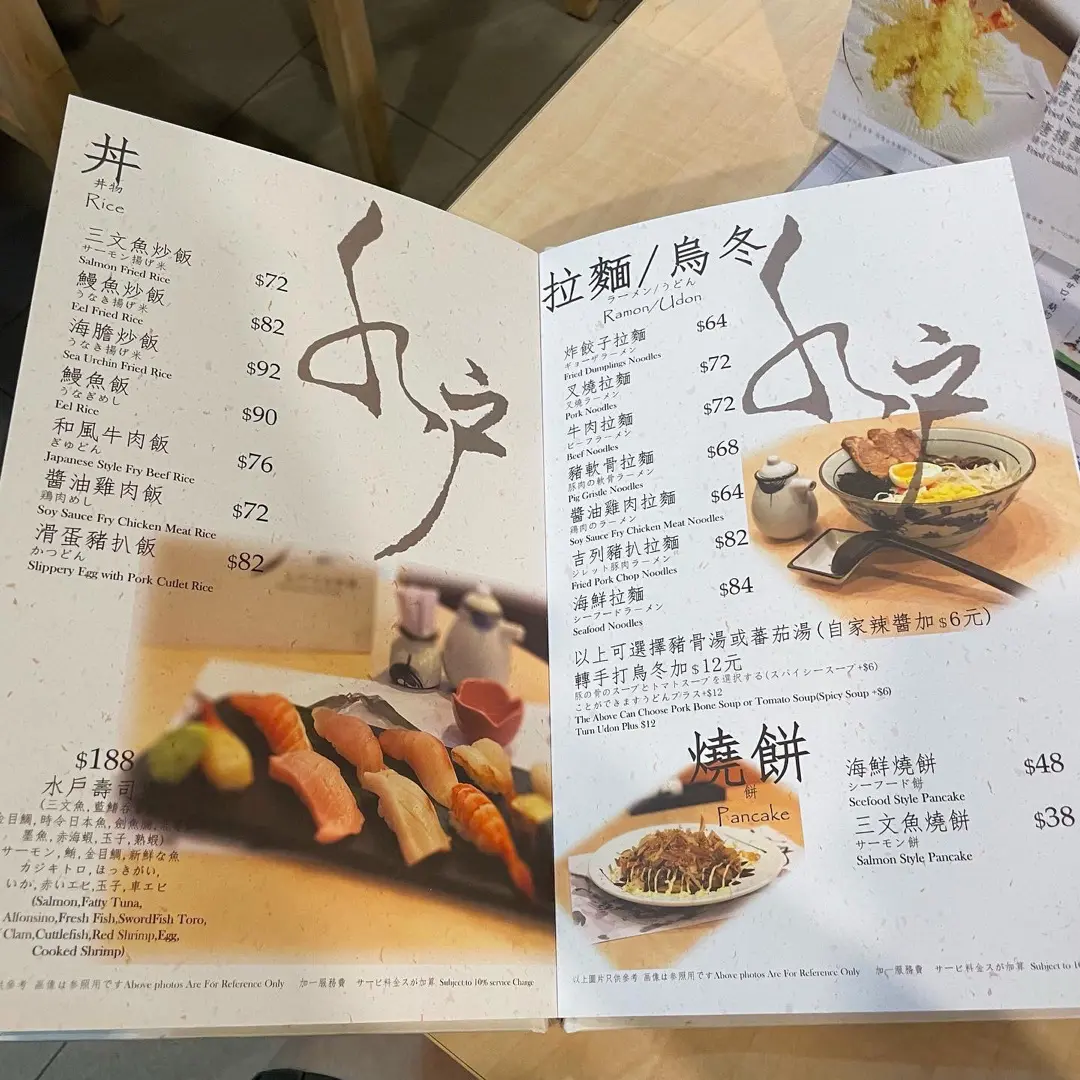 丼
丼物
Rice
三文魚炒飯
サーモン揚げ米
Salmon Fried Rice
$72
鰻魚炒飯
うなき揚げ米
Eel Fried Rice
$82
海膽炒飯
うなき揚げ米
Sea Urchin Fried Rice
$92
鰻魚飯
うなぎめし
Eel Rice
$90
和風牛肉飯
ぎゅどん
Japanese Style Fry Beef Rice
$76
醬油雞肉飯
鶏肉めし
Soy Sauce Fry Chicken Meat Rice
$72
滑蛋豬扒飯
かつどん
Slippery Egg with Pork Cutlet Rice
$82
水戶
$188
水戶壽司
(三文魚,藍鰭吞
金目鯛,時令日本魚,劍魚腩,
墨魚,赤海蝦,玉子,熟蝦)
サーモン,鮪,金目鯛,新鮮な魚
カジキトロ,ほっきがい,
いか,赤いエビ,玉子,車エビ
(Salmon,Fatty Tuna,
Alfonsino,Fresh Fish,SwordFish Toro,
Clam,Cuttlefish,Red Shrimp,Egg,
Cooked Shrimp)
供參考 画像は参照用ですAbove photos Are For Reference Only 加一服務費 サービ料金スが加算 Subject to 10% service Charge
拉麵/烏冬
ラーメン/うどん
Ramon/Udon
炸餃子拉麵
ギョーザラーメン
Fried Dumplings Noodles
$64
叉燒拉麵
叉焼ラーメン
Pork Noodles
$72
牛肉拉麵
ビーフラーメン
Beef Noodles
$72
豬軟骨拉麵
豚肉の軟骨ラーメン
Pig Gristle Noodles
$68
醬油雞肉拉麵
鶏肉のラーメン
Soy Sauce Fry Chicken Meat Noodles
$64
吉列豬扒拉麵
ジレット豚肉ラーメン
Fried Pork Chop Noodles
$82
海鮮拉麵
シーフードラーメン
Seafood Noodles
$84
水戶
以上可選擇豬骨湯或蕃茄湯(自家辣醬加$6元)
轉手打烏冬加$12元
豚の骨のスープとトマトスープを選択する(スパイシースープ+$6)
ことができますうどんプラス+$12
The Above Can Choose Pork Bone Soup or Tomato Soup(Spicy Soup +$6)
Turn Udon Plus $12
燒餅
餅
Pancake
海鮮燒餅
シーフード餅
Seefood Style Pancake
$48
三文魚燒餅
サーモン餅
Salmon Style Pancake
$38
以上圖片只供參考 画像は参照用ですAbove photos Are For Reference Only 加一服務費 サービ料金スが加算 Subject to 10
Fried Cuttlefish